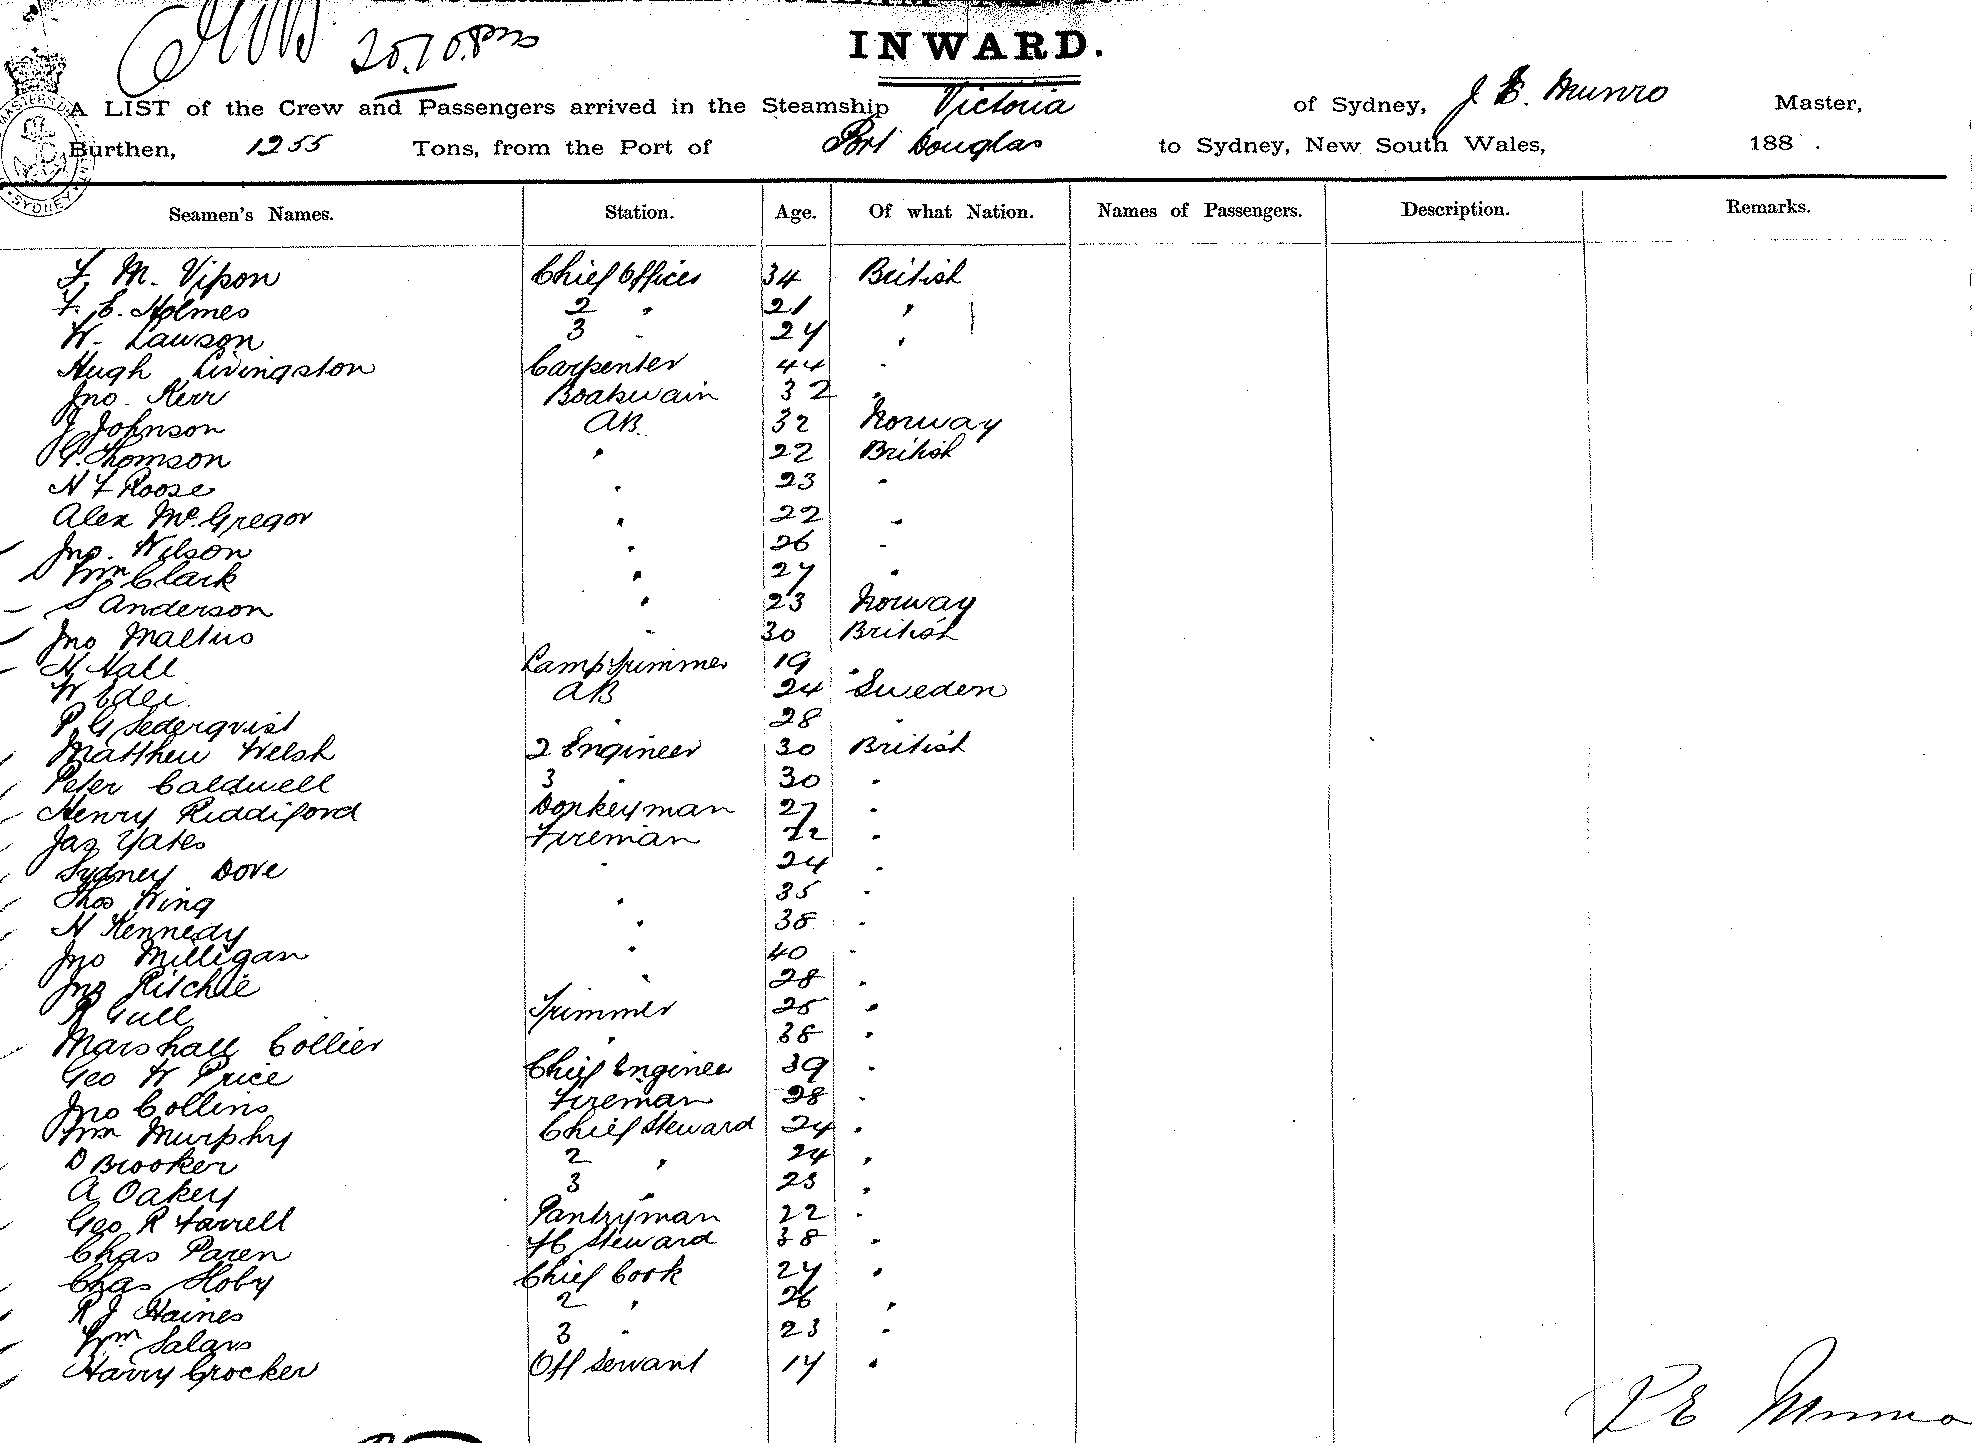 20.10.8
INWARD.
A LIST of the Crew and Passengers arrived in the Steamship Victoria of Sydney, J E. Munro Master,
Burthen, 1255 Tons, from the Port of Port Douglas to Sydney, New South Wales, 188 .
Seamen's Names. Station. Age. Of what Nation. Names of Passengers. Description. Remarks.
F. M. Vipon Chief Officer 34 British
F. E. Holmes 2 " 21 "
W. Lawson 3 " 24 "
Hugh Livingston Carpenter 44 "
Jno. Kerr Boatswain 32 "
J Johnson AB. 32 Norway
G. Thomson " 22 British
H F Roose " 23 "
Alex McGregor " 22 "
Jno. Wilson " 26 "
Wm Clark " 27 "
S Anderson " 23 Norway
Jno Maltus " 30 British
H Hall Lamp trimmer 19 "
W Edei AB 24 Sweden
P. G Sederqvist " 28 "
Matthew Welsh 2 Engineer 30 British
Peter Caldwell 3 " 30 "
Henry Riddiford Donkeyman 27 "
Jas Yates Fireman 22 "
Sydney Dove " 24 "
Thos King " 35 "
H Kennedy " 38 "
Jno Milligan " 40 "
Jno Ritchie " 28 "
R Gull Trimmer 25 "
Marshall Collier " 38 "
Geo W Price Chief Engineer 39 "
Jno Collins Fireman 28 "
Wm Murphy Chief Steward 24 "
D Brooker 2 " 24 "
A Oakey 3 " 23 "
Geo R Farrell Pantryman 22 "
Chas Paren FC Steward 38 "
Chas Hoby Chief Cook 27 "
R J Haines 2 " 26 "
Wm Salans 3 " 23 "
Harry Crocker Off Servant 14 "
J E Munro